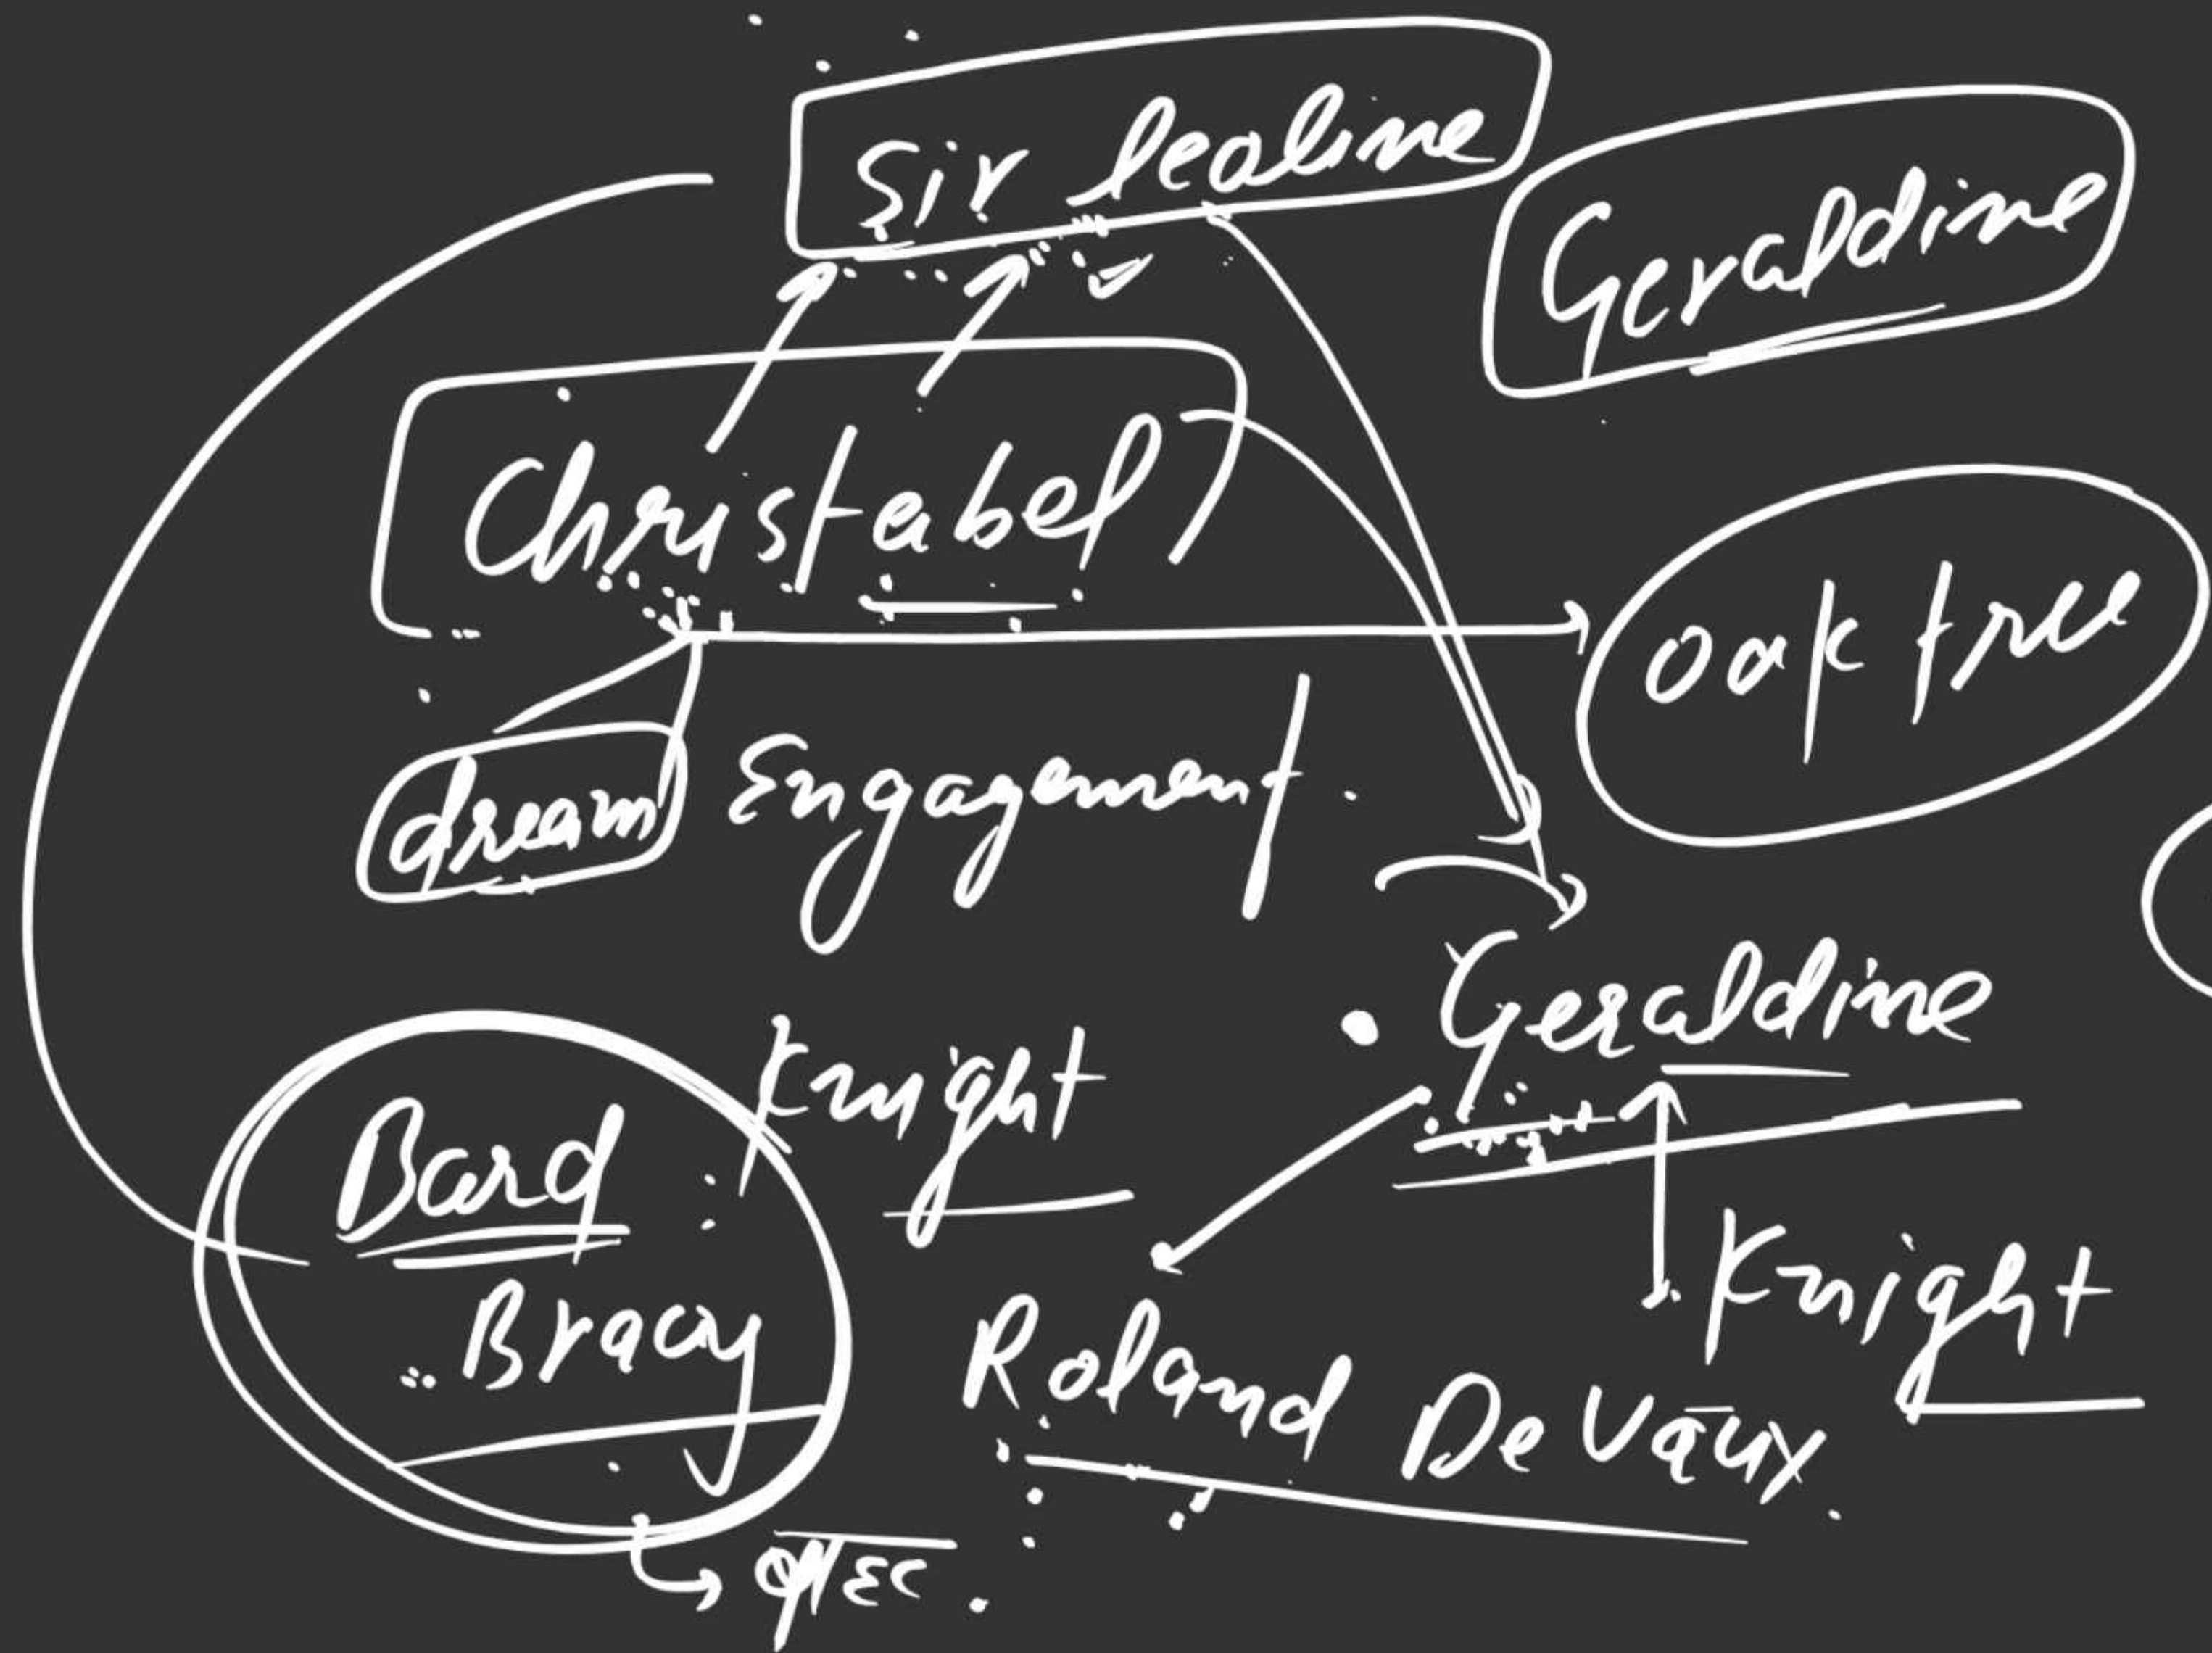 Sir leoline
Geraldine
Christabel
oak tree
dream Engagement.
Geraldine
Knight
Bard
Bracy
Knight
Roland De Vaux.